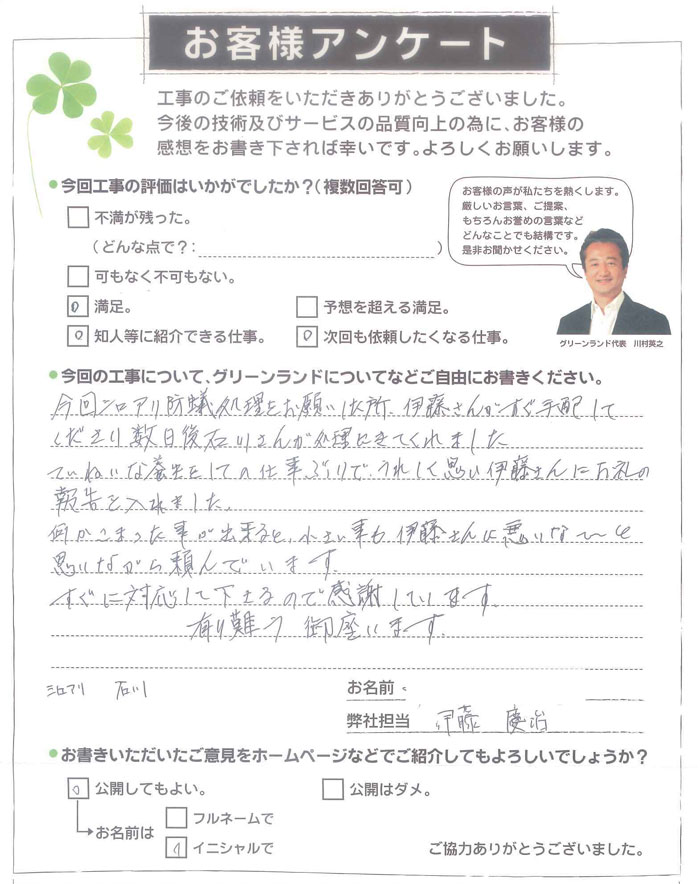 お客様アンケート
工事のご依頼をいただきありがとうございました。
今後の技術及びサービスの品質向上の為に、お客様の
感想をお書き下されば幸いです。よろしくお願いします。
●今回工事の評価はいかがでしたか?(複数回答可)
お客様の声が私たちを熱くします。
厳しいお言葉、ご提案、
もちろんお誉めの言葉など
どんなことでも結構です。
是非お聞かせください。
□不満が残った。
(どんな点で?: )
□可もなく不可もない。
満足。 □予想を超える満足。
知人等に紹介できる仕事。 次回も依頼したくなる仕事。
グリーンランド代表 川村英之
●今回の工事について、グリーンランドについてなどご自由にお書きください。
今回シロアリ防蟻処理をお願いした所、伊藤さんがすぐ手配して
くださり数日後石川さんが処理にきてくれました
ていねいな養生をしての仕事ぶりで、うれしく思い伊藤さんにお礼の
報告を入れました。
何かこまった事が出来ると、小さい事も伊藤さんに悪いな〜と
思いながら頼んでいます。
すぐに対応して下さるので感謝しています。
有り難う 御座います。
シロアリ 石川
お名前
弊社担当 伊藤 慶治
●お書きいただいたご意見をホームページなどでご紹介してもよろしいでしょうか?
公開してもよい。 □公開はダメ。
お名前は □フルネームで
イニシャルで
ご協力ありがとうございました。